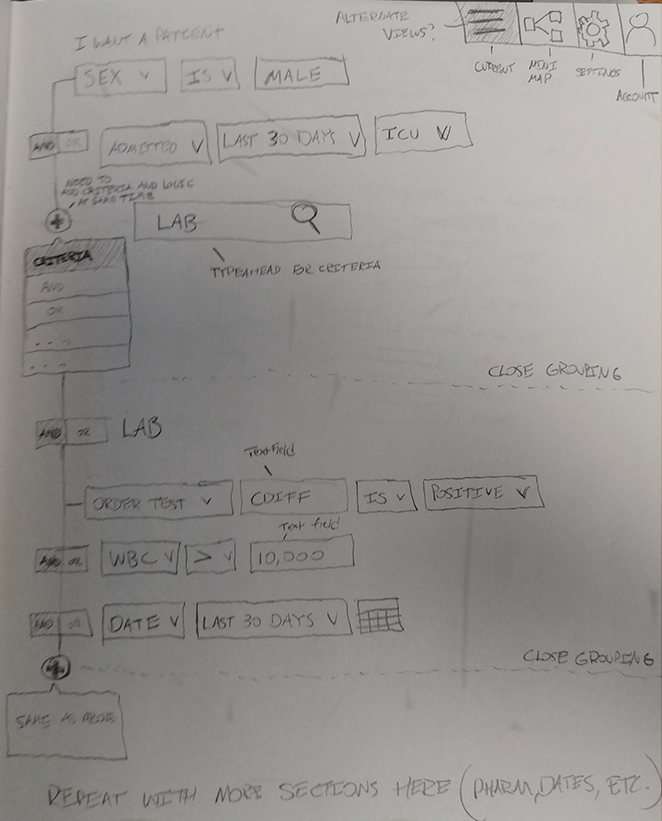 ALTERNATE
VIEWS?
CURRENT
MINI
MAP
SETTINGS
ACCOUNT
I WANT A PATIENT
SEX IS MALE
AND OR ADMITTED LAST 30 DAYS ICU
NEED TO
ADD CRITERIA AND LOGIC
AT SAME TIME
+ LAB
TYPEAHEAD FOR CRITERIA
CRITERIA
AND
OR
...
...
CLOSE GROUPING
AND OR LAB
Text Field
ORDER TEST CDIFF IS POSITIVE
Text field
AND OR WBC > 10,000
AND OR DATE LAST 30 DAYS
+ CLOSE GROUPING
SAME AS ABOVE
REPEAT WITH MORE SECTIONS HERE (PHARM, DATES, ETC.)